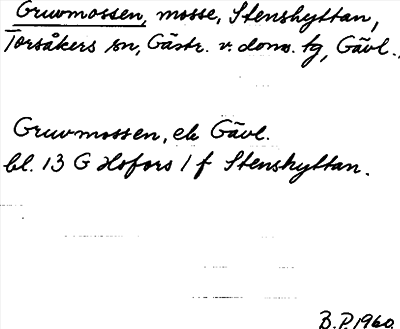 Gruvmossen, mosse, Stenshyttan,
Torsåkers sn, Gästr. v. doms. tg, Gävl.
Gruvmossen, ek Gävl.
bl. 13 G Hofors 1 f Stenshyttan.
B.P. 1960